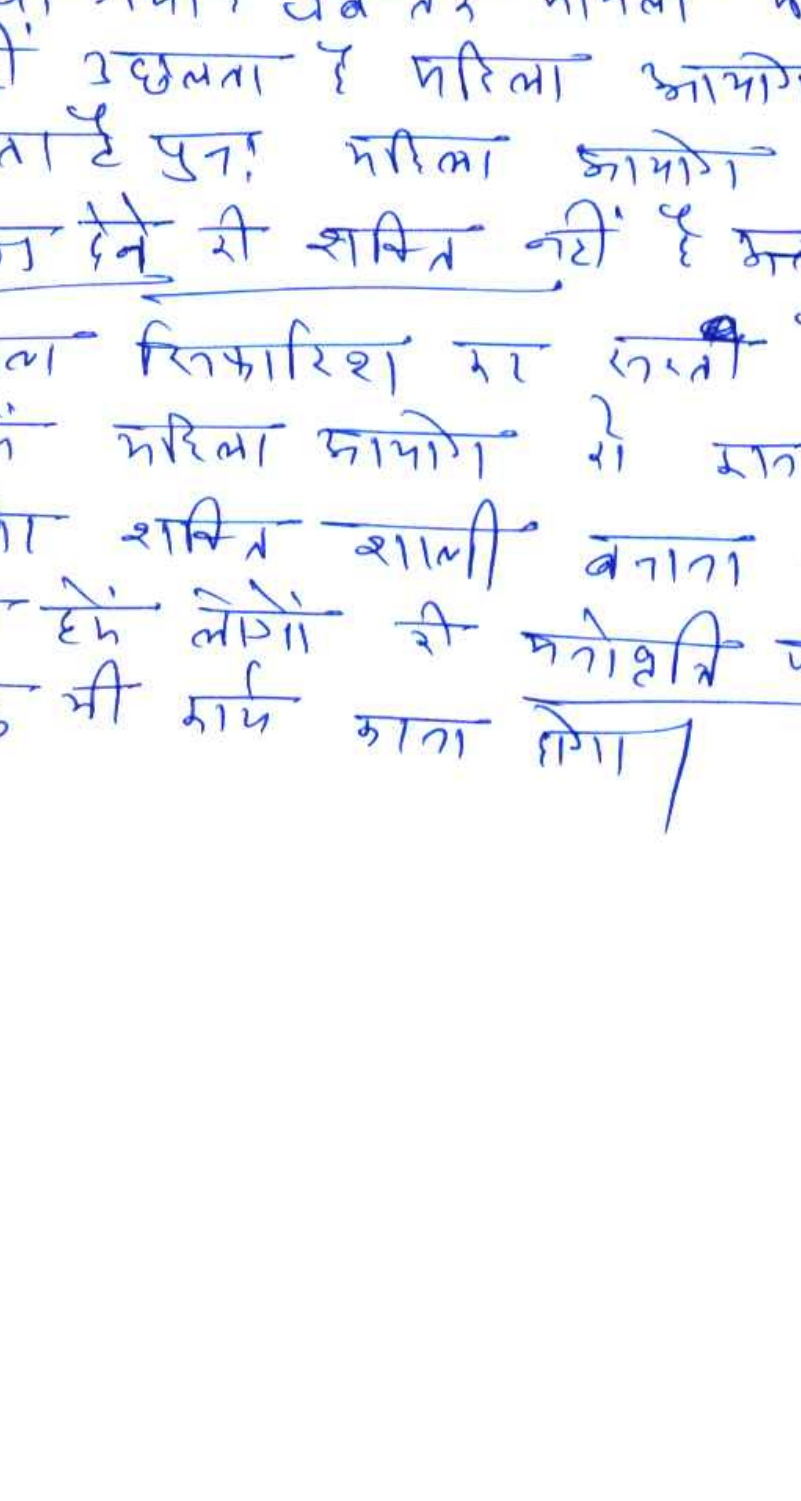 जब तक मामला
उछलता है महिला आयोग
है पुन: महिला आयोग
देने की शक्ति नहीं है
सिफारिश कर सकती
महिला आयोग को
शक्ति शाली बनाना
हमें लोगों की मनोवृत्ति
भी कार्य करना होगा।